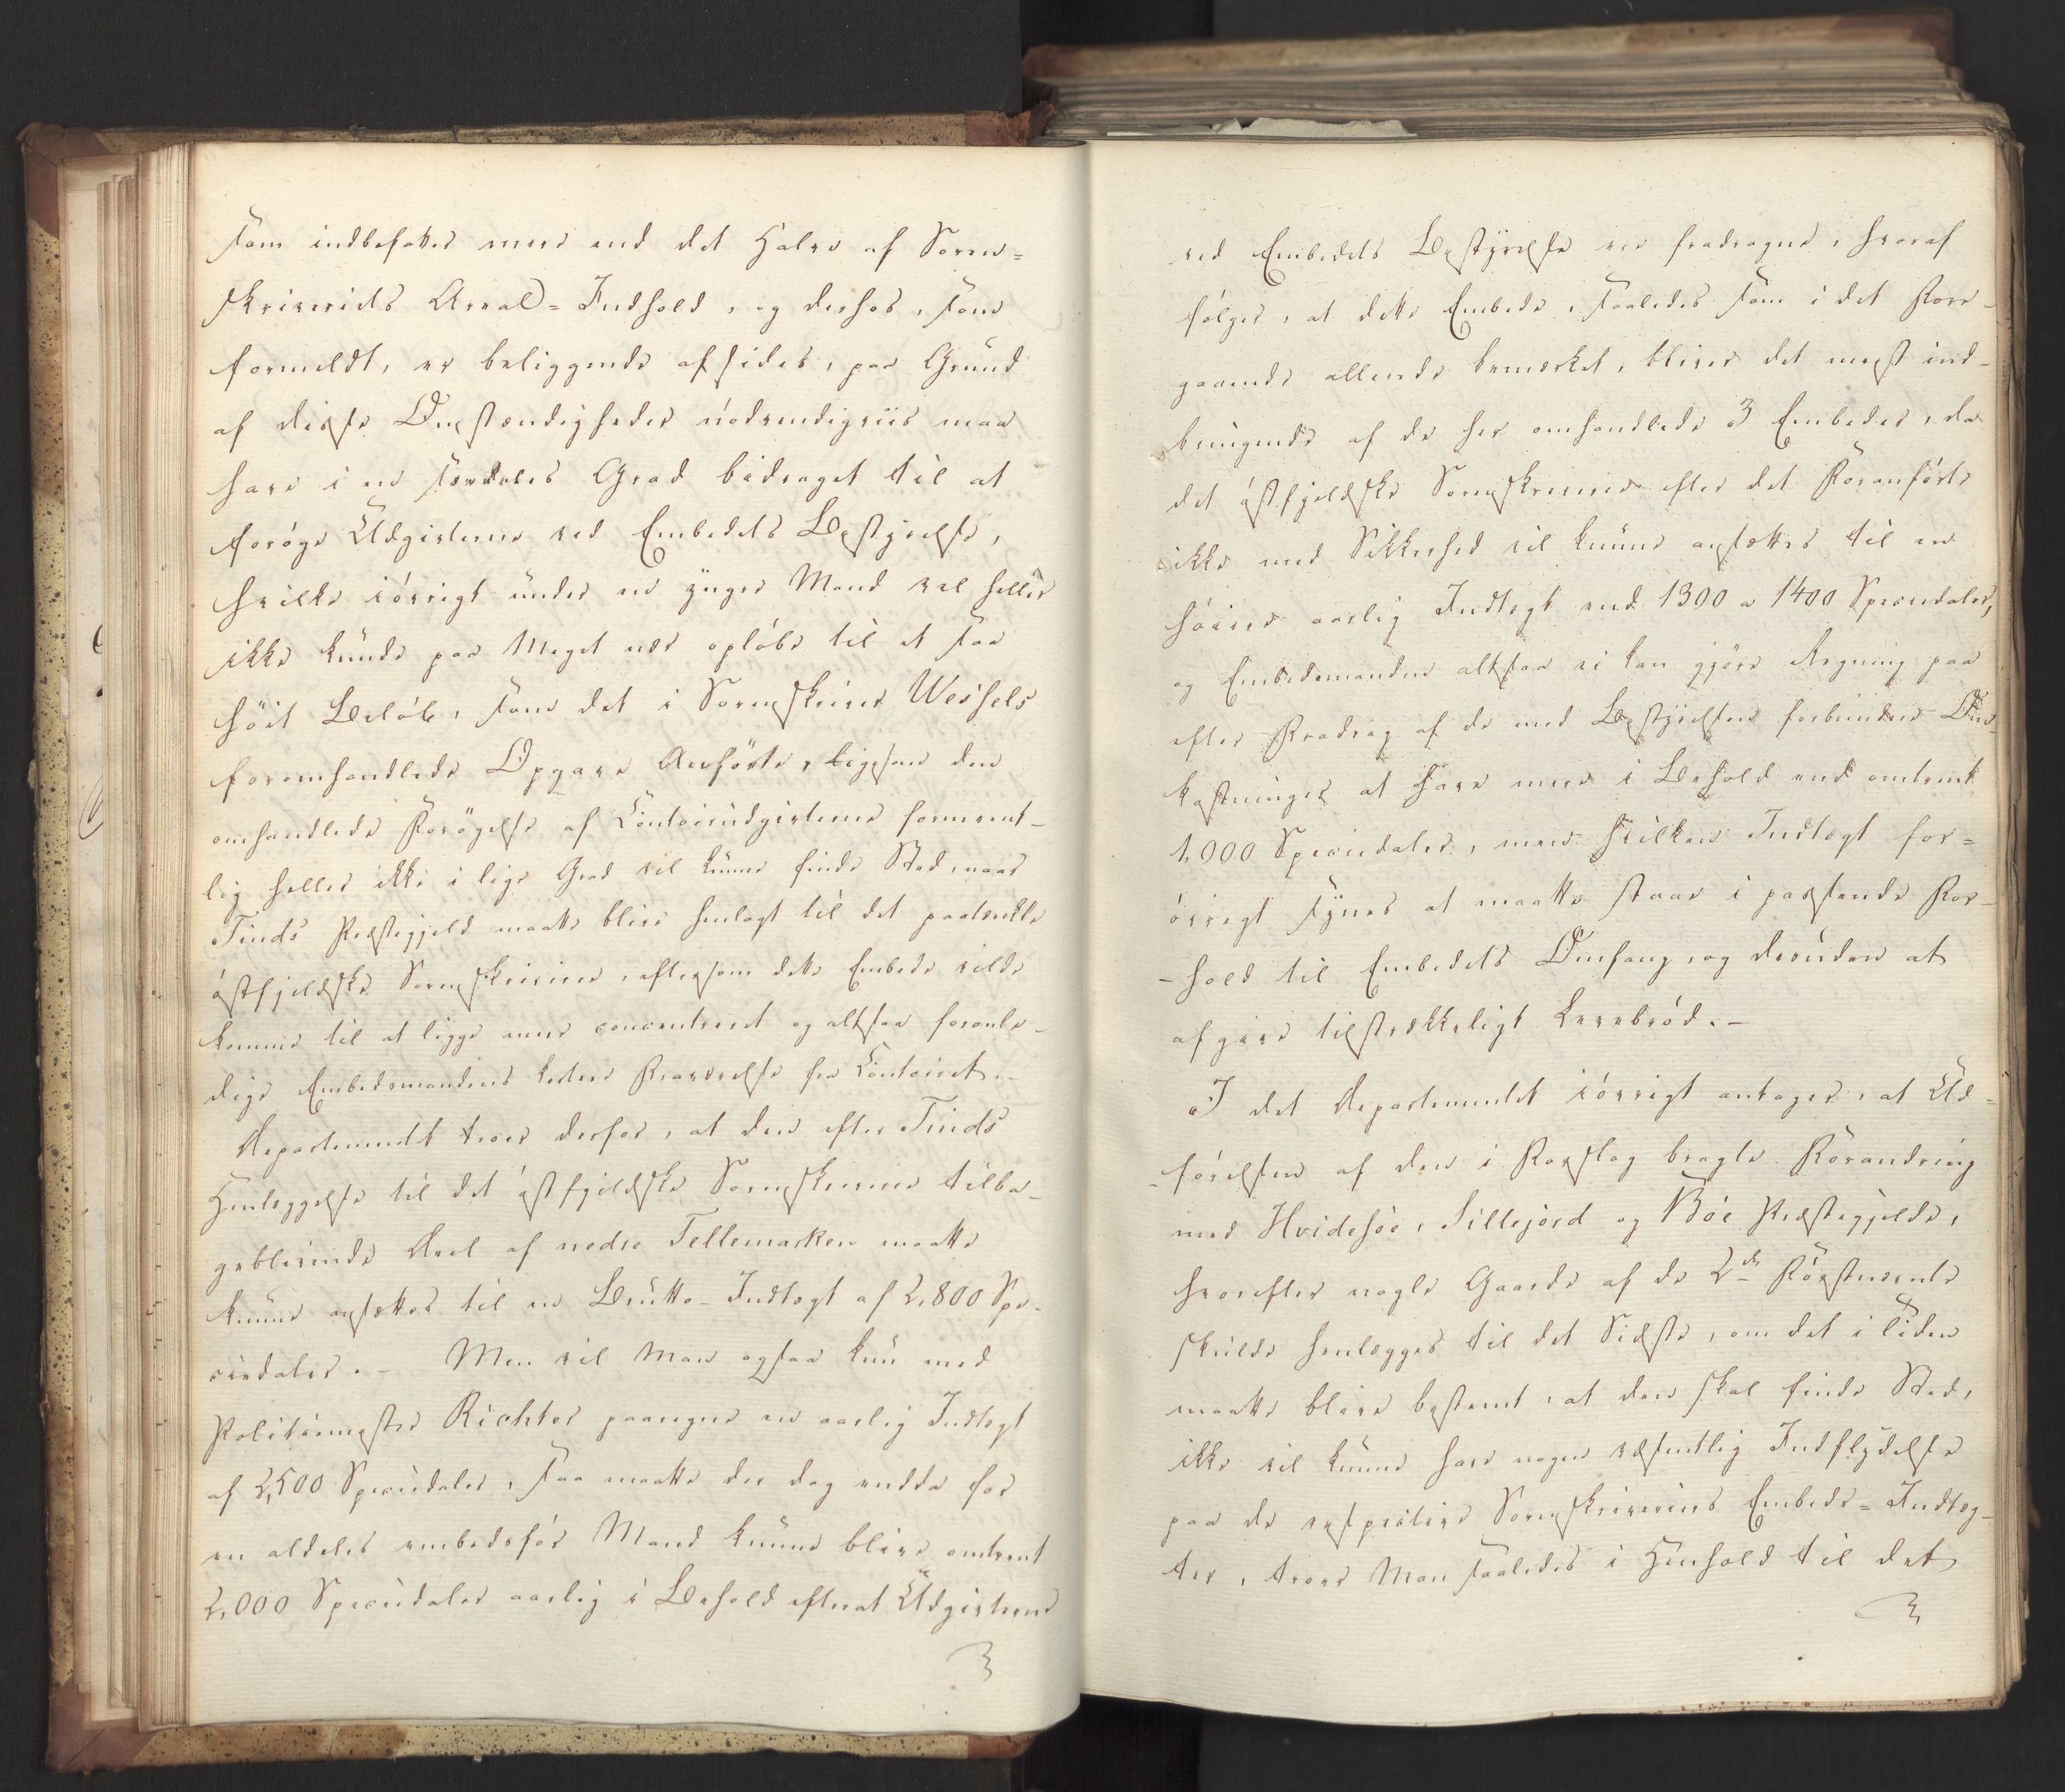 som indbefatter mere end det Halve af Soren-
skriveriets Areal-Indhold, og derhos, som
formeldt, er beliggende afsides, paa Grund
af disse Omstændigheder nödvendigviis maa
have i en særdeles Grad bidraget til at
foröge Udgivterne ved Embedets Bestyrelse,
hvilke iövrigt under en yngre Mand vel heller
ikke kunde paa Meget nær oplöbe til et saa
höit Belöb, som det i Sorenskriver Wessels
foromhandlede Opgave Anförte, ligesom den
omhandlede Forögelse af Contoirudgivterne forment-
lig heller ikke i lige Grad vil kunne finde Sted, naar
Tinds Præstegjeld maatte blive henlagt til det paatænkte
östfjeldske Sorenskriverie, eftersom dette Embede vilde
komme til at ligge mere concentreret og altsaa foranle-
dige Embedsmandens kortere Fraværelse fra Contoiret.-
Departementet troer derfor, at den efter Tinds
Henlæggelse til det östfjeldske Sorenskriverie tilba-
geblivende Deel af nedre Tellemarken maatte
kunne ansættes til en Brutto-Indtægt af 2,800 Spe-
ciedaler.- Men vil Man ogsaa kun med
Politiemester Richter paaregne en aarlig Indtægt
af 2,500 Speciedaler, saa maatte der dog endda for
en aldeles embedsför Mand kunne blive omtrent
2,000 Speciedaler aarlig i Behold efterat Udgivterne
ved Embedets Bestyrelse ere fradragne, hvoraf
fölger, at dette Embede, saaledes som i det Fore-
gaaende allerede bemærket, bliver det meest ind-
bringende af de her omhandlede 3 Embeder, da
det östfjeldske Sorenskriverie efter det Foranförte
ikke med Sikkerhed vil kunne ansættes til en
höiere aarlig Indtægt end 1300 a 1400 Speciedaler,
og Embedsmanden altsaa ei kan gjöre Regning paa
efter Fradrag af de med Bestyrelsen forbundne Om-
kostninger at have mere i Behold end omtrent
1,000 Speciedaler, men hvilken Indtægt for-
övrigt synes at maatte staae i passende For-
-hold til Embedets Omfang, og desuden at
afgive tilstrækkeligt Levebröd.-
I det Departementet iövrigt antager, at Ud-
-förelsen af den i Forslag bragte Forandring
med Hvidesöe, Sillejord og Böe Præstegjelde,
hvorefter nogle Gaarde af de 2de Förstnævnte
skulde henlægges til det Sidste, om det i Tiden
maatte blive bestemt, at den skal finde Sted,
ikke vil kunne have nogen væsentlig Indflydelse
paa de respective Sorenskriveries Embeds-Indtæg-
ter, troer Man saaledes i Henhold til det